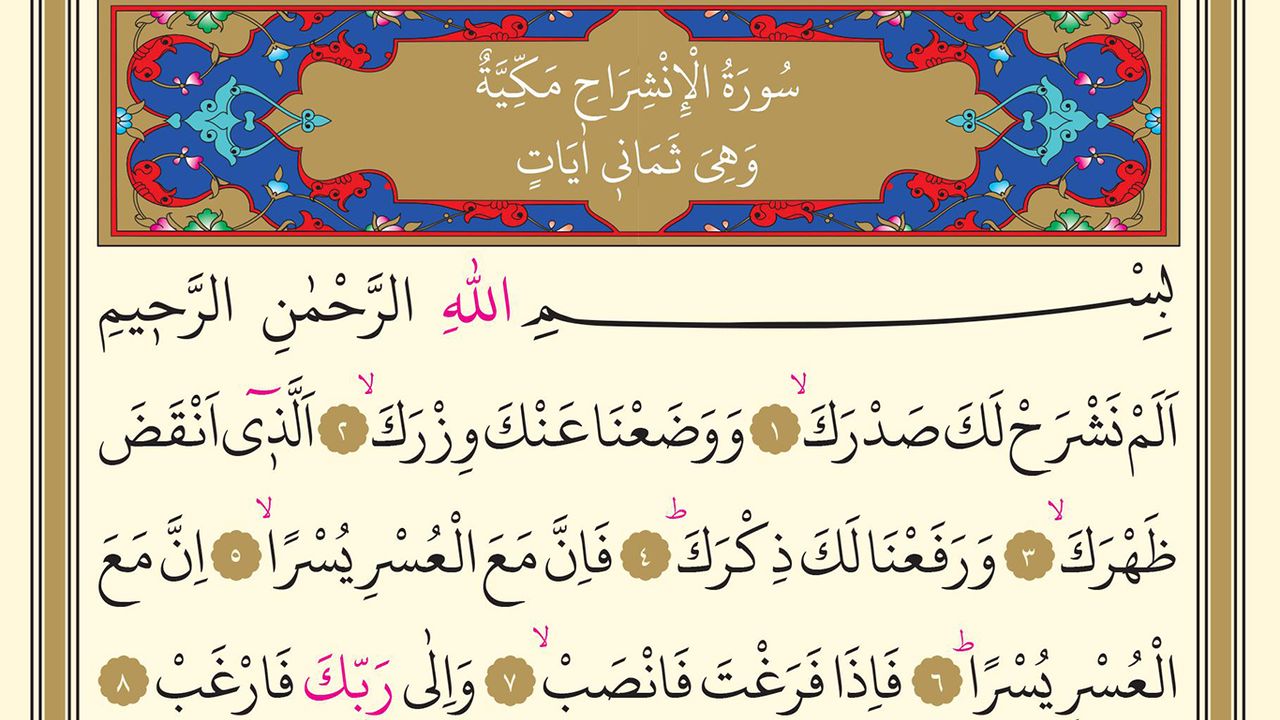 سُورَةُ الْإِنْشِرَاحِ مَكِّيَّةٌ
وَهِيَ ثَمَانٖى اٰيَاتٍ
بِسْمِ اللّٰهِ الرَّحْمٰنِ الرَّحٖيمِ
اَلَمْ نَشْرَحْ لَكَ صَدْرَكَۙ ١ وَوَضَعْنَا عَنْكَ وِزْرَكَۙ ٢ اَلَّذٖٓى اَنْقَضَ
ظَهْرَكَۙ ٣ وَرَفَعْنَا لَكَ ذِكْرَكَؕ ٤ فَاِنَّ مَعَ الْعُسْرِ يُسْرًاۙ ٥ اِنَّ مَعَ
الْعُسْرِ يُسْرًاؕ ٦ فَاِذَا فَرَغْتَ فَانْصَبْۙ ٧ وَاِلٰى رَبِّكَ فَارْغَبْ ٨